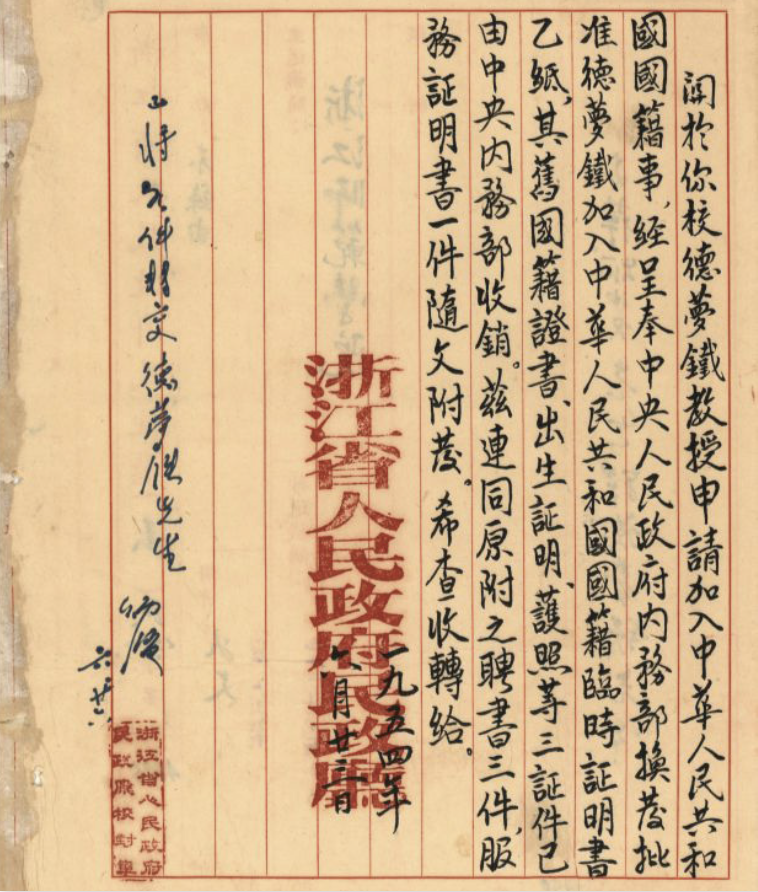 關於你校德夢鐵教授申請加入中華人民共和
國國籍事,經呈奉中央人民政府內務部換發批
准德夢鐵加入中華人民共和國國籍臨時証明書
乙紙,其舊國籍證書、出生証明、護照等三証件已
由中央內務部收銷。茲連同原附之聘書三件,服
務証明書一件隨文附發。希查收轉給。
一九五四年
六月廿三日
浙江省人民政府民政廳
將 件轉交德夢鐵先生
六 廿
浙江省人民政府
民政廳校對章